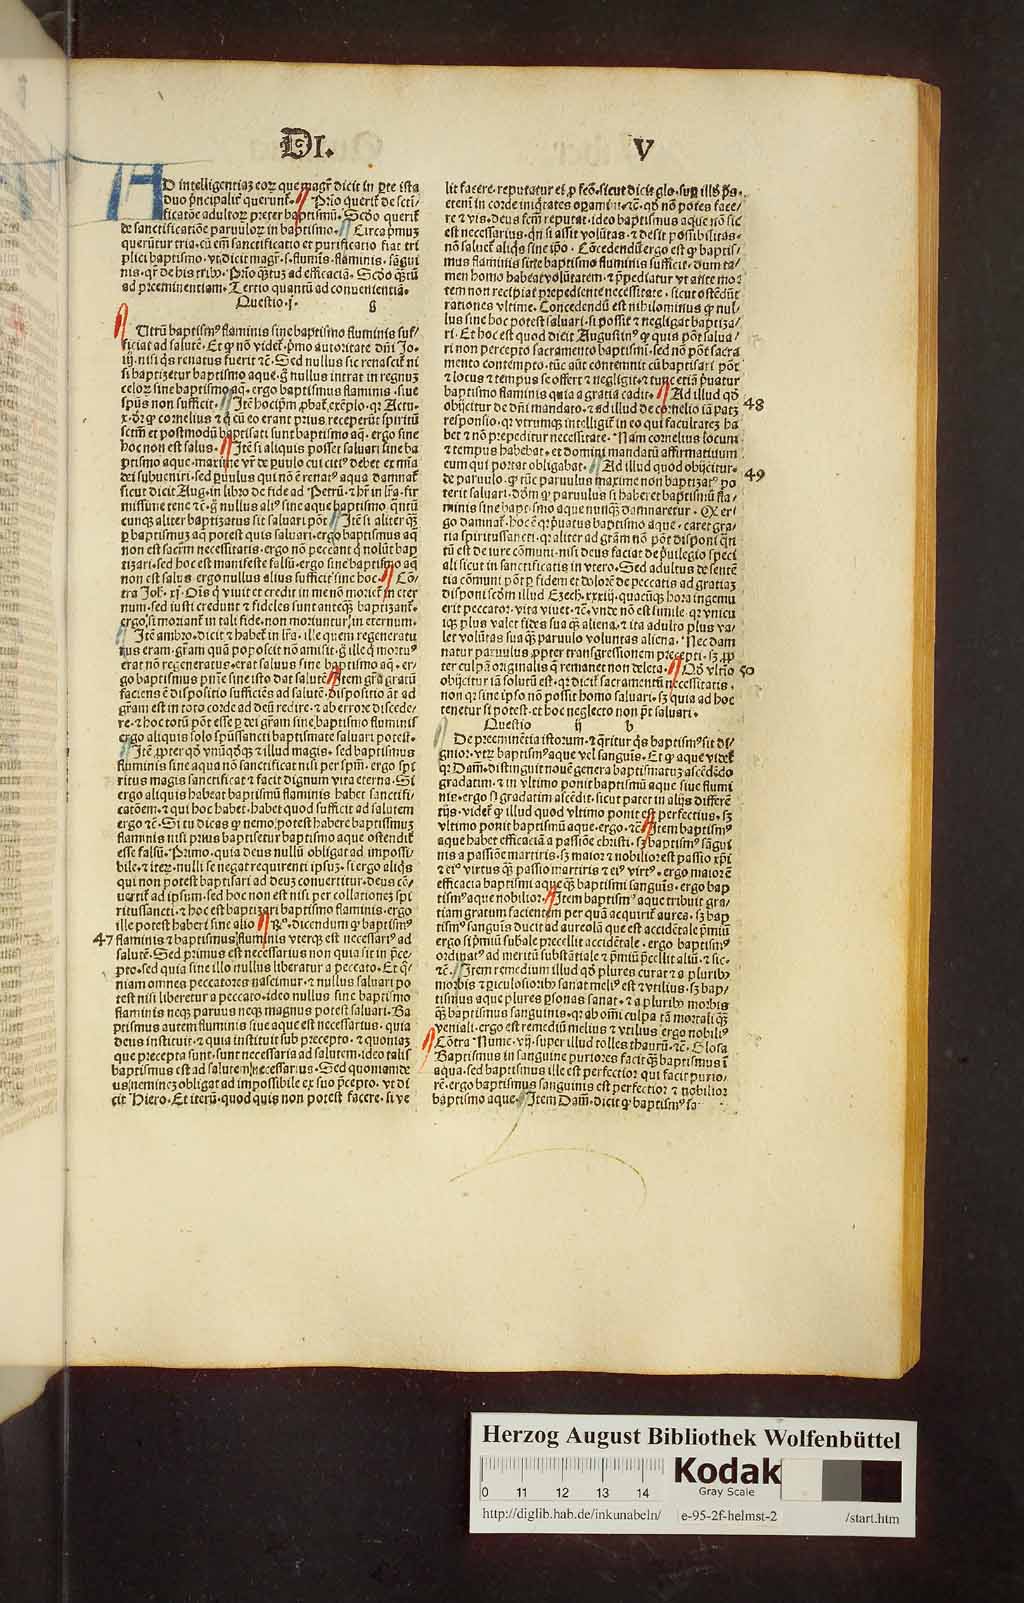 DI. V
AD intelligentiaʒ eoꝝ que magr̄ dicit in ꝑte ista
duo pͥncipalit̉ querunt̉. Pͥmo querit̉ de scti/
ficatōe adultoꝝ preter baptismū. Scḋo querit̉
de sanctificatiōe paruuloꝝ in baptismo. Circa pͥmuʒ
querūtur tria. cū em̄ sanctificatio et purificatio fiat tri
plici baptismo. vt dicit magr̄. s. flumīs. flaminis. sāgui
nis. qr̄ de his tribꝰ. Pͥmo q̄ꝛituꝛ ad efficaciā. Scḋo q̄tū
ad preeminentiam. Tertio quantū ad conuenientiā.
Questio .j. g
Utrū baptismꝰ flaminis sine baptismo fluminis suf/
ficiat ad salutē. Et ꝙ nō videt̉. pͥmo autoritate dn̄i Jo.
iij. nisi qͥs renatus fuerit ⁊c̄. Sed nullus sic renascit̉ ni
si baptizetur baptismo aque. g̊ nullus intrat in regnuʒ
celoꝝ sine baptismo aq̄. ergo baptismus flaminis. siue
spūs non sufficit. Itē hoc ip̄m ꝓbat̉ exēplo. qr̄ Actu.
x. dr̄ ꝙ cornelius ⁊ q̇ cū eo erant prius receperūt spiritū
sctm̄ et postmodū baptisati sunt baptismo aq̄. ergo sine
hoc non est salus. Itē si aliquis posset saluari sine ba
ptismo aque. maxime vr̄ de ꝑuulo cui citiꝰ debet ex mīa
dei subueniri. sed ꝑuulus qui nō ē renatꝰ aqua damnat̉
sicut dicit Aug. in libro de fide ad Petrū. ⁊ hr̄ in lr̄a. fir
missime tene ⁊c̄. g̊ nullus aliꝰ sine aque baptismo q̄ntū
cunqʒ aliter baptizatus sit saluari pōt. Itē si aliter qʒ
ꝑ baptismuʒ aq̄ potest quis saluari. ergo baptismus aq̄
non est sacr̄m necessitatis. ergo nō peccant q̇ nolūt bap
tizari. sed hoc est manifeste falsū. ergo sine baptismo aq̄
non est salus. ergo nullus alius sufficit sine hoc. Cō/
tra Joh̄. xj. Oīs q̇ viuit et credit in me nō moriet̉ in eter
num. sed iusti credunt ⁊ fideles sunt anteqʒ baptizant̉.
ergo si moriant̉ in tali fide. non moriunt̉ in eternum.
Itē ambro. dicit ⁊ habet̉ in lr̄a. ille quem regeneratu
rus eram. gr̄am quā poposcit nō amisit. g̊ ille q̇ mortuꝰ
erat nō regeneratus. erat saluus sine baptismo aq̄. er.
go baptismus pn̄ie sine isto dat salutē. Item gr̄a gratū
faciens ē dispositio sufficiēs ad salutē. dispositio aūt ad
gr̄am est in toto corde ad deū redire. ⁊ ab errore discede/
re. ⁊ hoc totū pōt esse ꝑ dei gr̄am sine baptismo fluminis
ergo aliquis solo spūssancti baptismate saluari potest.
Itē ꝓpter qḋ vnūqḋqʒ ⁊ illud magis. sed baptismus
fluminis sine aqua nō sanctificat nisi per spm̄. ergo spi
ritus magis sanctificat ⁊ facit dignum vita eterna. Si
ergo aliquis habeat baptismū flaminis habet sanctifi.
catōem. ⁊ qui hoc habet. habet quod sufficit ad salutem
ergo ⁊c̄. Si tu dicas ꝙ nemo potest habere baptismuʒ
flaminis nisi prius baptisetur baptismo aque ostendit̉
esse falsū. Primo. quia deus nullū obligat ad impossi/
bile. ⁊ iteꝝ. nulli se negat requirenti ipsuʒ. si ergo aliqͥs
qui non potest baptisari ad deuʒ conuertitur. deus cō/
uertit̉ ad ipsum. sed hoc non est nisi per collationeʒ spi
ritussancti. ⁊ hoc est baptizari baptismo flaminis. ergo
ille potest haberi sine alio. Rꝰ. dicendum ꝙ baptismꝰ
47 flaminis ⁊ baptismus fluminis vterqʒ est necessariꝰ ad
salutē. Sed primus est necessarius non quia sit in pͥce.
pto. sed quia sine illo nullus liberatur a peccato. Et qͥ.
niam omnes peccatores nascimur. ⁊ nullus saluari po
test nisi liberetur a peccato. ideo nullus sine baptismo
flaminis neqʒ paruus neqʒ magnus potest saluari. Ba
ptismus autem fluminis siue aque est necessarius. quia
deus instituit. ⁊ quia instituit sub precepto. ⁊ quoniaʒ
que precepta sunt. sunt necessaria ad salutem. ideo talis
baptismus est ad salutem necessarius. Sed quoniam de
us neminem obligat ad impossibile ex suo pͥcepto. vt di
cit Hiero. Et iterū. quod quis non potest facere. si ve
lit facere. reputatur ei ꝓ fc̄o. sicut dicit glo. suꝑ illḋ ps̄.
etenī in corde iniqͥtates operamini. ⁊c̄. qḋ nō potes face/
re ⁊ vis. deus fc̄m reputat. ideo baptismus aque nō sic
est necessarius. qn̄ si assit volūtas. ⁊ desit possibilitas.
nō saluet̉ aliqͥs sine ip̄o. Cōcedendū ergo est ꝙ baptis/
mus flaminis sine baptismo fluminis sufficit. dum ta/
men homo habeat volūtatem. ⁊ p̄pediatur vt ante mor
tem non recipiat prepediente necessitate. sicut ostēdūt
rationes vltime. Concedendū est nihilominus ꝙ nul/
lus sine hoc potest saluari. si possit ⁊ negligat baptiza/
ri. Et hoc est quod dicit Augustinꝰ ꝙ quis pōt salua/
ri non percepto sacramento baptismi. sed nō pōt sacra
mento contempto. tūc aūt contemnit cū baptisari pōt
⁊ locus ⁊ tempus se offert ⁊ negligit. ⁊ tunc etiā pͥuatur
baptismo flaminis quia a gratia cadit. Ad illud qḋ
obijcitur de dn̄i mandato. ⁊ ad illud de cornelio iā patʒ 48
responsio. qr̄ vtrumqʒ intelligit̉ in eo qui facultateʒ ha
bet ⁊ nō prepeditur necessitate. Nam cornelius locum
⁊ tempus habebat. et domini mandatū affirmatiuum
eum qui poterat obligabat. Ad illud quod obijcitur.
de paruulo. ꝙ tūc paruulus maxime non baptizatꝰ po 49
terit saluari. dōm ꝙ paruulus si habet baptismū fla/
minis sine baptismo aque nunqʒ damnaretur. Qꝛ er/
go damnat̉. hoc ē qr̄ pͥuatus baptismo aque. caret gra/
tia spiritussancti. qr̄ aliter ad gr̄am nō pōt disponi q̄n
tū est de iure communi. nisi deus faciat de pͥuilegio speci
ali sicut in sanctificatis in vtero. Sed adultus de sentē
tia cōmuni pōt ꝑ fidem et dolorē de peccatis ad gratiaʒ
disponi scḋm illud Ezech. xxxiij. quacūqʒ hora ingemu
erit peccator. vita viuet. ⁊c̄. vnde nō est simile. qr̄ vnicu
iqʒ plus valet fides sua qʒ aliena. ⁊ ita adulto plus va/
let volūtas sua qʒ paruulo voluntas aliena. Nec dam
natur paruulus ꝓpter transgressionem precepti. sʒ ꝓp
ter culpā originalis q̄ remanet non deleta. Qḋ vltīo 50
obijcitur iā solutū est. qr̄ dicit̉ sacramentū necessitatis.
non qr̄ sine ipso nō possit homo saluari. sʒ quia ad hoc
tenetur si potest. et hoc neglecto non pͥt saluari.
Questio ij h
De preeminētia istorum. ⁊ q̄ritur qͥs baptismꝰ sit di/
gnior. vtꝝ baptismꝰ aque vel sanguīs. Et ꝙ aque videt̉.
qr̄ Dam̄. distinguit nouē genera baptismatuʒ ascēdēdo
gradatim. ⁊ in vltimo ponit baptismū aque siue flumi
nis. ergo si gradatim ascēdit. sicut patet in alijs differē
tijs. videt̉ ꝙ illud quod vltimo ponit est perfectius. sʒ
vltimo ponit baptismū aque. ergo. ⁊c̄. Item baptismꝰ
aque habet efficaciā a passiōe christi. sʒ baptismꝰ sāgui
nis a passiōe martiris. sʒ maior ⁊ nobilior est passio xp̄i
⁊ eiꝰ virtus qʒ passio martiris ⁊ eiꝰ virtꝰ. ergo maiorē
efficacia baptismi aque qʒ baptismi sanguīs. ergo bap
tismꝰ aque nobilior. Item baptismꝰ aque tribuit gra/
tiam gratum facientem per quā acquirit̉ aurea. sʒ bap
tismꝰ sanguīs ducit ad aureolā que est accidētale p̄miū
ergo si p̄miū subale precellit accidētale. ergo baptismꝰ
ordinatꝰ ad meritū substātiale ⁊ p̄miū p̄cellit aliū. ⁊ sic.
⁊c̄. Item remedium illud qḋ plures curat ⁊ a pluribꝰ
morbis ⁊ ꝑiculosioribꝰ sanat meliꝰ est ⁊ vtilius. sʒ bap/
tismus aque plures ꝑsonas sanat. ⁊ a pluribꝰ morbis
qʒ baptismus sanguinis. qr̄ ab om̄i culpa tā mortali qʒ
veniali. ergo est remediū melius ⁊ vtilius ergo nobiliꝰ
Cōtra Nume. vij. super illud tolles thaurū. ⁊c̄. Glosa
Baptismus in sanguine puriores facit qʒ baptismus ī
aqua. sed baptismus ille est perfectior qui facit purio/
rē. ergo baptismus sanguinis est perfectior ⁊ nobilior
baptismo aque. Item Dam̄. dicit ꝙ baptismꝰ sa
Herzog August Bibliothek Wolfenbüttel
Kodak
Gray Scale
0 11 12 13 14
http://diglib.hab.de/inkunabeln/ e-95-2f-helmst-2 /start.htm